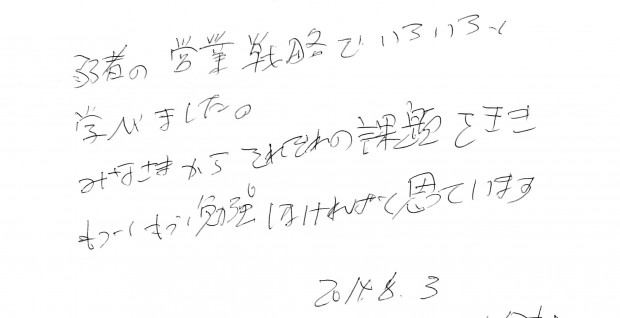 弱者の営業戦略でいろいろと
学びました。
みなさまからそれぞれの課題をきき
もっともっと勉強しなければと思っています
2014.8.3